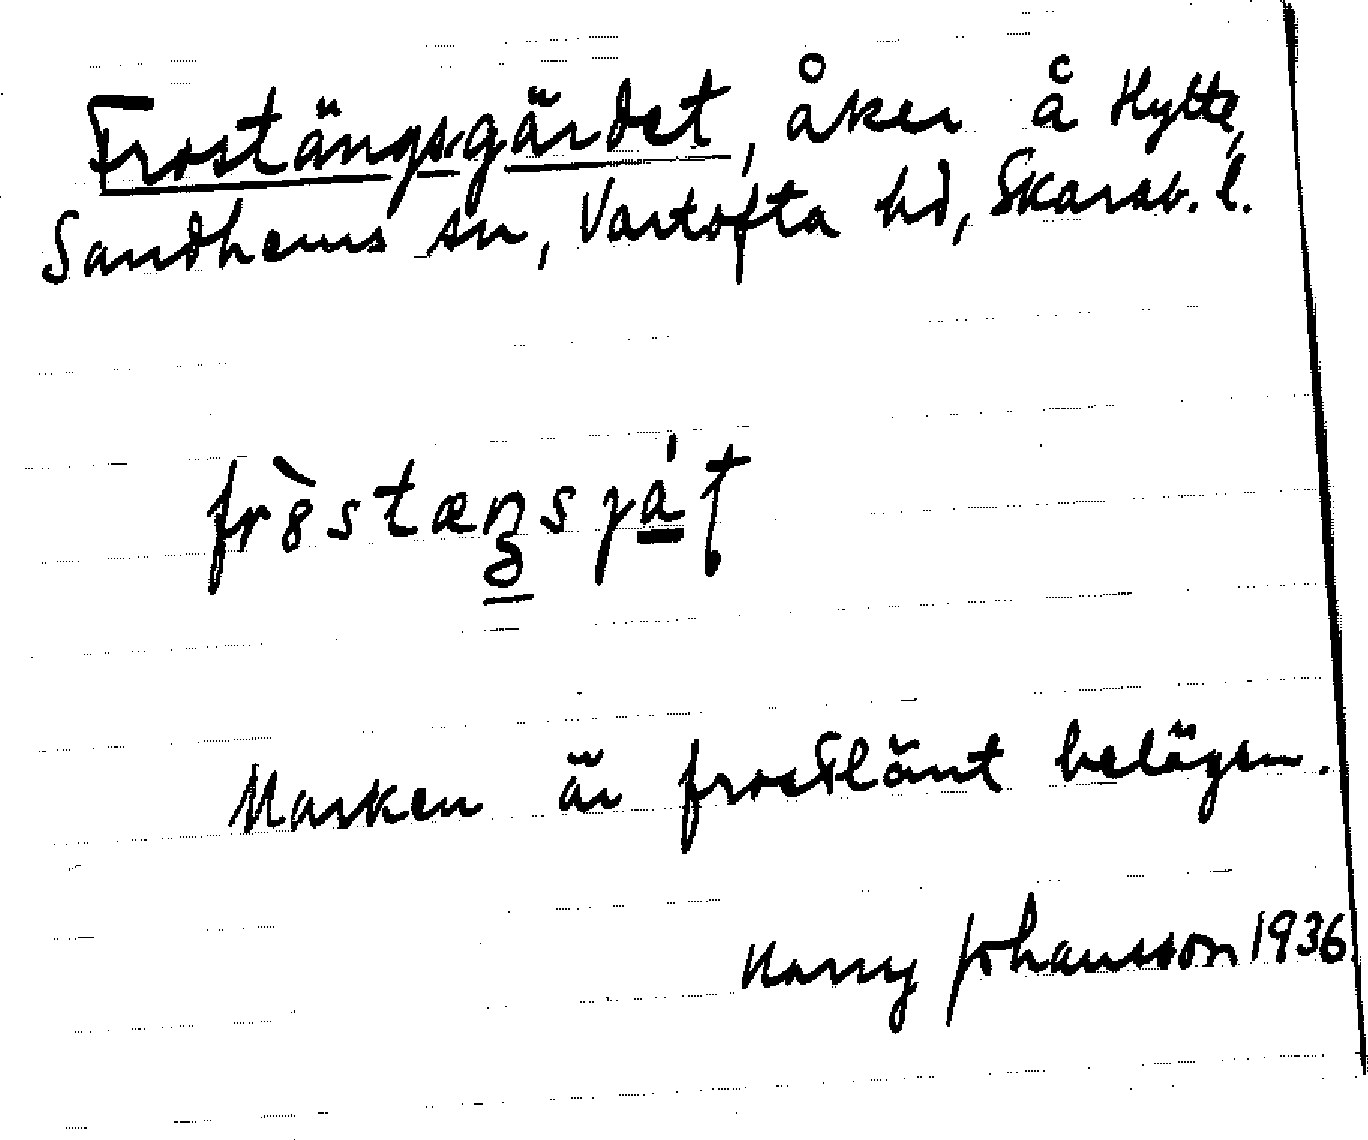 Frostängsgärdet, åker å Hytte,
Sandhems sn, Vartofta hd, Skarab. l.
Marken är frostlänt belägen.
Harry Johansson 1936.